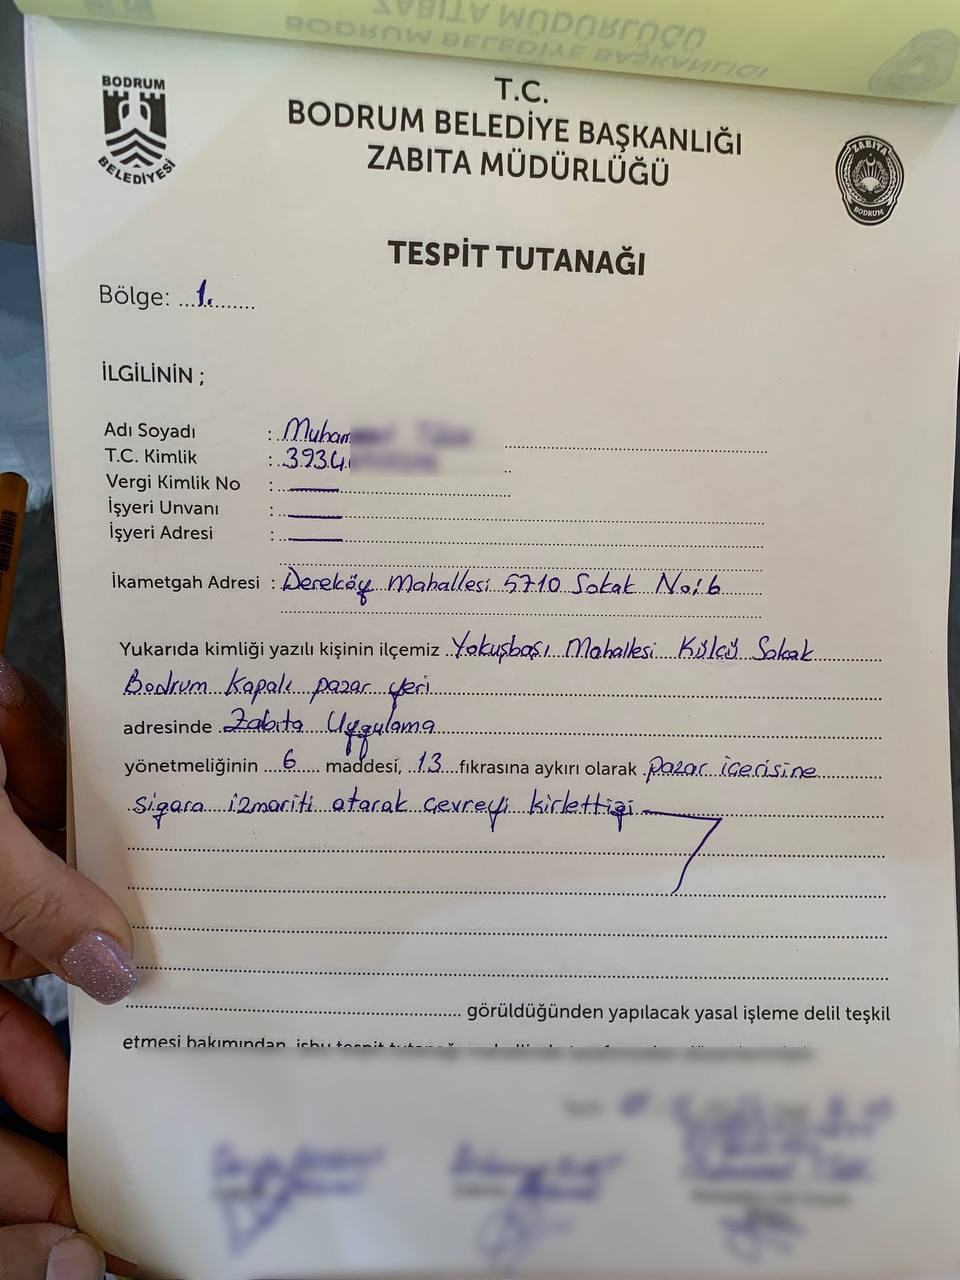 ZABITA MÜDÜRLÜĞÜ
BODRUM BELEDİYE BAŞKANLIĞI
BODRUM
BELEDİYESİ
T.C.
BODRUM BELEDİYE BAŞKANLIĞI
ZABITA MÜDÜRLÜĞÜ
ZABITA
BODRUM
TESPİT TUTANAĞI
Bölge: ...1...........
İLGİLİNİN ;
Adı Soyadı : Muham
T.C. Kimlik : 3934
Vergi Kimlik No :
İşyeri Unvanı :
İşyeri Adresi :
İkametgah Adresi : Dereköy Mahallesi 5710 Sokak No:6
Yukarıda kimliği yazılı kişinin ilçemiz Yokuşbaşı Mahallesi Külcü Sokak
Bodrum Kapalı pazar yeri
adresinde Zabıta Uygulama
yönetmeliğinin 6 maddesi, 13 fıkrasına aykırı olarak pazar içerisine
sigara izmariti atarak çevreyi kirlettiği
görüldüğünden yapılacak yasal işleme delil teşkil
etmesi bakımından, işbu tespit tutanağı